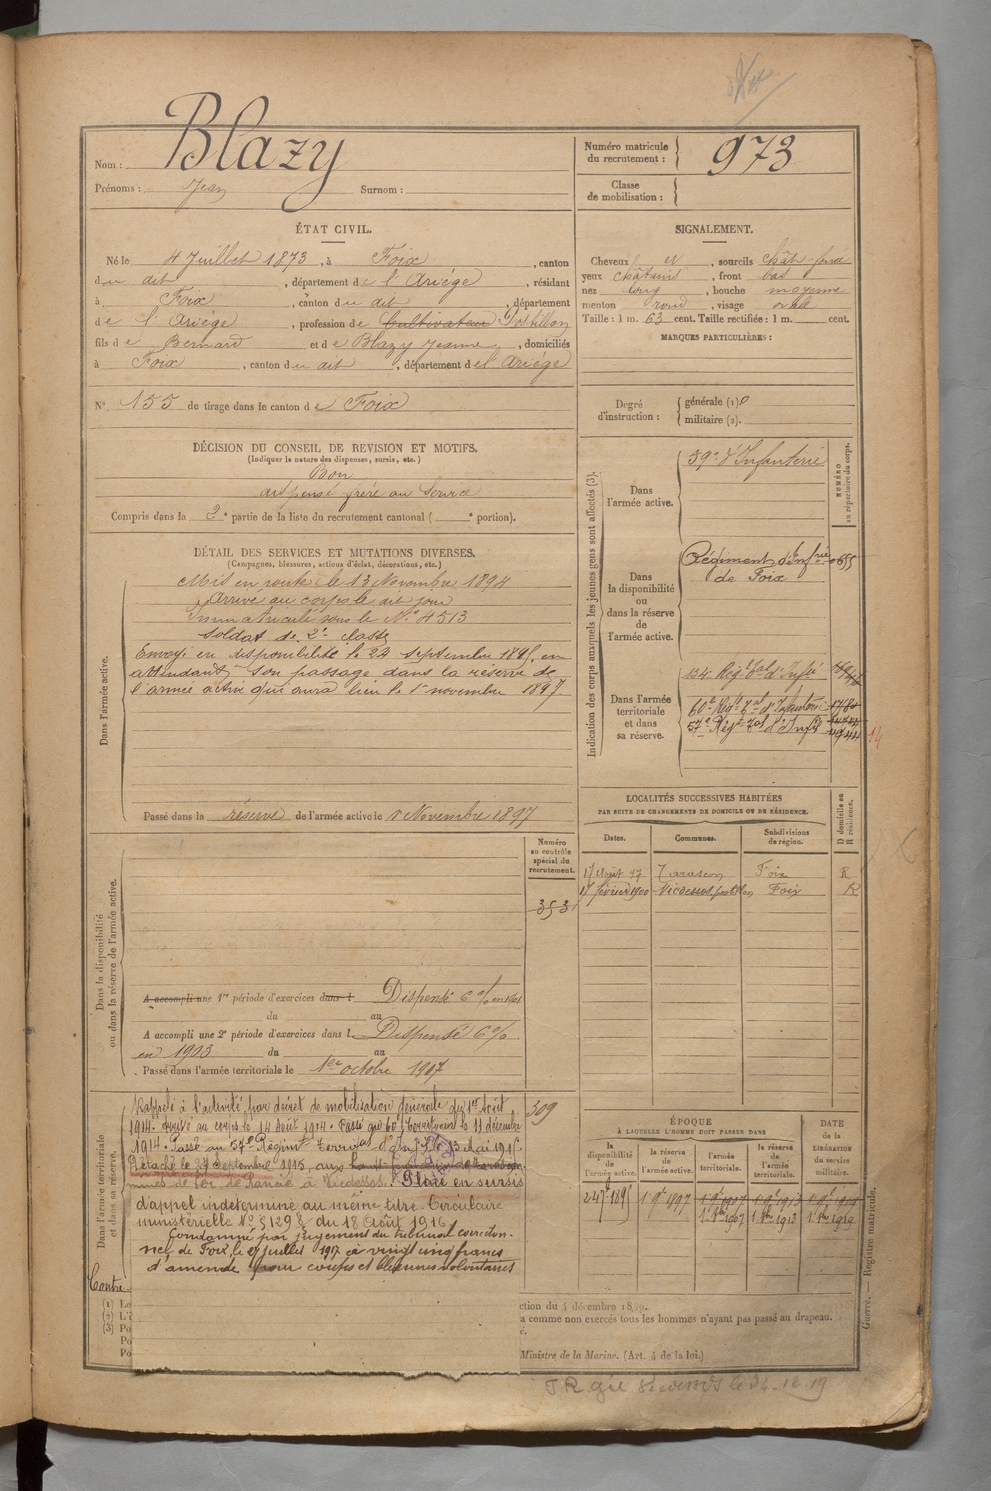 Nom : Blazy
Prénoms : Jean Surnom :
Numéro matricule du recrutement : 973
Classe de mobilisation :
ÉTAT CIVIL.
Né le 4 Juillet 1873, à Foix, canton
du dit, département de l'Ariége, résidant
à Foix, canton du dit, département
de l'Ariége, profession de Cultivateur Postillon
fils de Bernard et de Blazy Jeanne, domiciliés
à Foix, canton du dit, département de l'Ariége
N° 155 de tirage dans le canton de Foix
SIGNALEMENT.
Cheveux et, sourcils chât-foncé
yeux châtains, front bas
nez long, bouche moyenne
menton rond, visage ovale
Taille : 1 m. 63 cent. Taille rectifiée : 1 m. cent.
MARQUES PARTICULIÈRES :
Degré d'instruction : générale (1) 0
militaire (2).
DÉCISION DU CONSEIL DE REVISION ET MOTIFS.
(Indiquer la nature des dispenses, sursis, etc.)
Bon
dispensé frère au Service
Compris dans la 2e partie de la liste du recrutement cantonal ( e portion).
DÉTAIL DES SERVICES ET MUTATIONS DIVERSES.
(Campagnes, blessures, actions d'éclat, décorations, etc.)
Dans l'armée active.
Mis en route le 13 Novembre 1894
Arrivé au corps le dit jour
Immatriculé sous le N° 4513
Soldat de 2e classe
Envoyé en disponibilité le 24 septembre 1895, en
attendant son passage dans la réserve de
l'armée active qui aura lieu le 1er novembre 1897
Passé dans la réserve de l'armée active le 1 Novembre 1897
Indication des corps auxquels les jeunes gens sont affectés (3).
NUMÉRO au répertoire du corps.
Dans l'armée active.
59e d'Infanterie
Dans la disponibilité ou dans la réserve de l'armée active.
Régiment d'Infrie 0655
de Foix
Dans l'armée territoriale et dans sa réserve.
134e Régt Tal d'Infie
60e Régt Tal d'Infanterie
57e Régt Tal d'Infie
14
LOCALITÉS SUCCESSIVES HABITÉES
PAR SUITE DE CHANGEMENTS DE DOMICILE OU DE RÉSIDENCE.
Dates. Communes. Subdivisions de région. D domicile ou R résidence.
17 Août 97 Tarascon Foix R
17 février 1900 Vicdessos postillon Foix R
Numéro au contrôle spécial du recrutement.
353
Dans la disponibilité ou dans la réserve de l'armée active.
A accompli une 1re période d'exercices dans l Dispensé 6 % en 1901
du au
A accompli une 2e période d'exercices dans l Dispensé 6 %
en 1903 du au
Passé dans l'armée territoriale le 1er octobre 1907
Dans l'armée territoriale et dans sa réserve.
309
Rappelé à l'activité par décret de mobilisation générale du 1er Août
1914. Arrivé au corps le 14 Août 1914. Passé au 60e Territorial le 11 décembre
1914. Passé au 57e Régiment Territorial d'Infie le 13 Mai 1915.
Détaché le 27 Septembre 1915, aux
mines de fer de Rancié à Vicdessos. Placé en sursis
d'appel indéterminé au même titre. Circulaire
ministérielle N° 5129 du 18 Août 1916
Condamné par jugement du tribunal correction-
nel de Foix le 27 juillet 1917 à vingt cinq francs
d'amende pour coups et blessures volontaires
ÉPOQUE
À LAQUELLE L'HOMME DOIT PASSER DANS
la disponibilité de l'armée active. la réserve de l'armée active. l'armée territoriale. la réserve de l'armée territoriale.
DATE de la LIBÉRATION du service militaire.
24 7bre 1895 1 9bre 1897 1 9bre 1907 1 9bre 1913 1 9bre 1919
1 8bre 1907 1 8bre 1913 1 8bre 1919
Contre.
(1) Le
(2) L'i
(3) Po
Po
Po
ction du 4 décembre 1889.
a comme non exercés tous les hommes n'ayant pas passé au drapeau.
é.
Ministre de la Marine. (Art. 4 de la loi.)
Guerre. — Registre matricule.